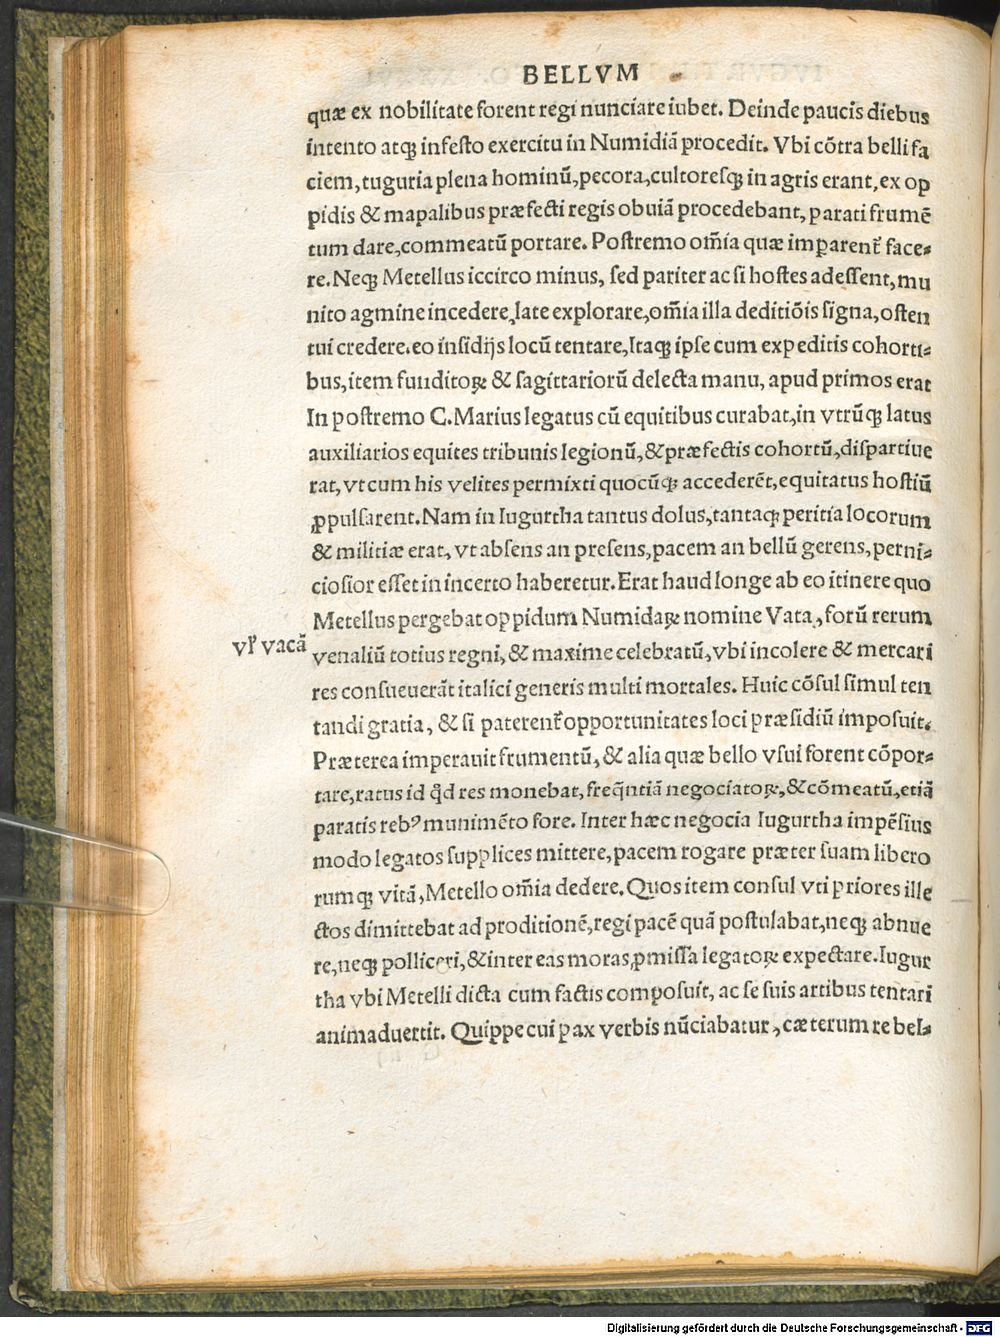 BELLVM
quæ ex nobilitate forent regi nunciare iubet. Deinde paucis diebus
intento atqꝫ infesto exercitu in Numidiã procedit. Vbi cõtra belli fa
ciem, tuguria plena hominũ, pecora, cultoresqꝫ in agris erant, ex op
pidis & mapalibus præfecti regis obuiã procedebant, parati frumẽ
tum dare, commeatũ portare. Postremo om̃ia quæ imꝑarent᷑ face-
re. Neqꝫ Metellus iccirco minus, sed pariter ac si hostes adessent, mu
nito agmine incedere, late explorare, om̃ia illa deditiõis signa, osten
tui credere. eo insidijs locũ tentare, Itaqꝫ ipse cum expeditis cohorti-
bus, item funditoꝝ & sagittariorũ delecta manu, apud primos erat
In postremo C. Marius legatus cũ equitibus curabat, in vtrũqꝫ latus
auxiliarios equites tribunis legionũ, & præfectis cohortũ, dispartiue
rat, vt cum his velites permixti quocũqꝫ accederẽt, equitatus hostiũ
ꝓpulsarent. Nam in Iugurtha tantus dolus, tantaqꝫ peritia locorum
& militiæ erat, vt absens an presens, pacem an bellũ gerens, perni-
ciosior esset in incerto haberetur. Erat haud longe ab eo itinere quo
Metellus pergebat oppidum Numidaꝝ nomine Vata, forũ rerum
vl̛ vacã
venaliũ totius regni, & maxime celebratũ, vbi incolere & mercari
res consueuerãt italici generis multi mortales. Huic cõsul simul ten
tandi gratia, & si paterent᷑ opportunitates loci præsidiũ imposuit.
Præterea imperauit frumentũ, & alia quæ bello vsui forent cõpor-
tare, ratus id qd̃ res monebat, freq̃ntiã negociatoꝝ, & cõmeatũ, etiã
paratis rebꝰ munimẽto fore. Inter hæc negocia Iugurtha impẽsius
modo legatos supplices mittere, pacem rogare præter suam libero
rumqꝫ vitã, Metello om̃ia dedere. Quos item consul vti priores ille
ctos dimittebat ad proditionẽ, regi pacẽ quã postulabat, neqꝫ abnue
re, neqꝫ polliceri, & inter eas moras, ꝓmissa legatoꝝ expectare. Iugur
tha vbi Metelli dicta cum factis composuit, ac se suis artibus tentari
animaduertit. Quippe cui pax verbis nũciabatur, cæterum re bel-
Digitalisierung gefördert durch die Deutsche Forschungsgemeinschaft - DFG